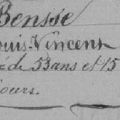 Bensse
uis-Vincent
é de 53 ans et 15
jours.